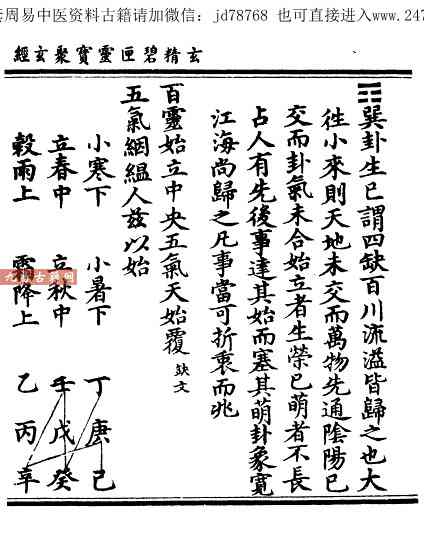 周易中医资料古籍请加微信：jd78768 也可直接进入www.247
玄精碧匣靈寶聚玄經
☴巽卦生巳謂四缺百川流溢皆歸之也大
徃小來則天地未交而萬物先通陰陽已
交而卦氣未合始立者生榮已萌者不長
占人有先後事達其始而塞其萌卦象寛
江海尚歸之凡事當可折衷而兆
百靈始立中央五氣天始覆缺文
五氣絪緼人兹以始
小寒下 小暑下 丁庚己
立春中 立秋中 壬戊癸
穀雨上 霜降上 乙丙辛